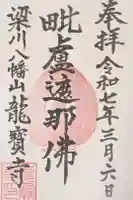 奉拝 令和七年三月六日
毗盧遮那佛
梁川八幡山龍寶寺